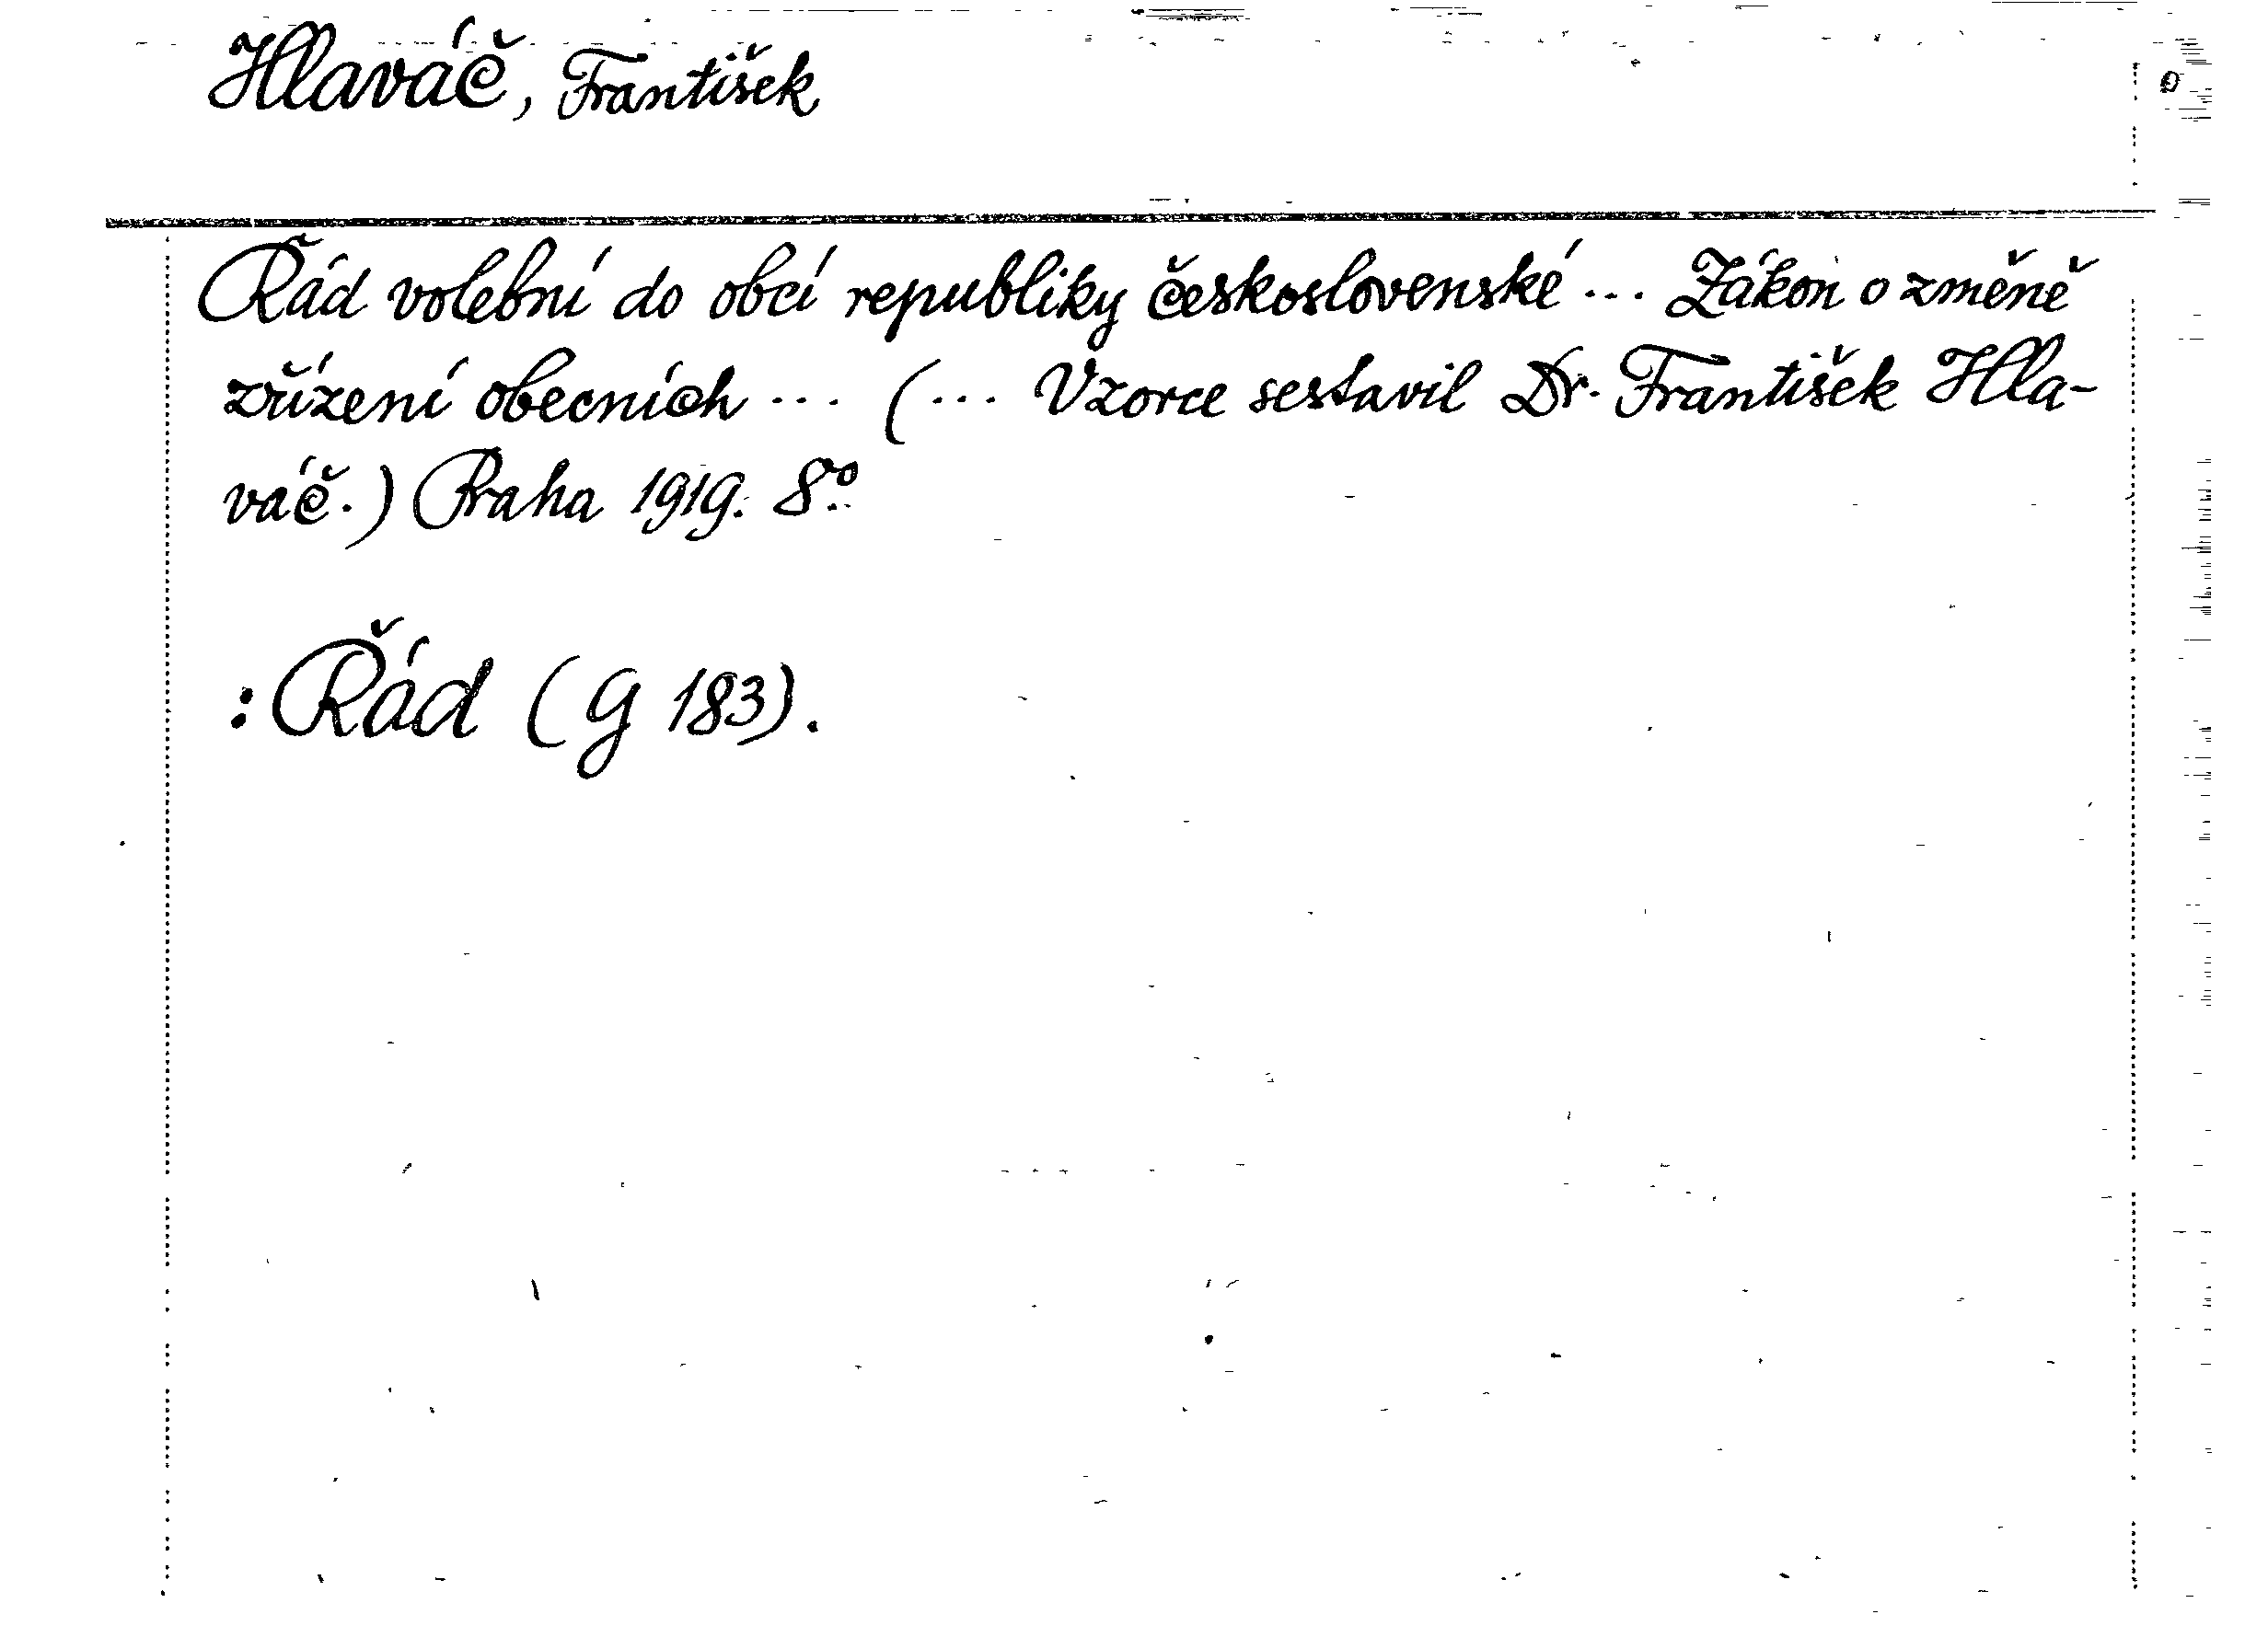 Hlaváč, František
Řád volební do obcí republiky československé ... Zákon o změně
zřízení obecních ... (... Vzorce sestavil Dr. František Hla-
váč.) Praha 1919. 8°.
: Řád (G 183).